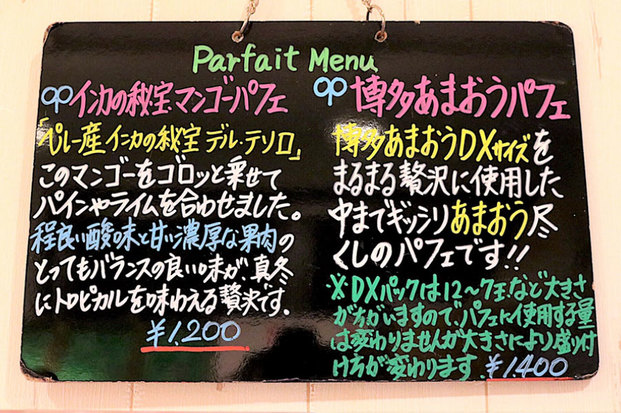 Parfait Menu
インカの秘宝マンゴーパフェ
「ペルー産インカの秘宝 デル・テソロ」
このマンゴーをゴロッと乗せて
パインやライムを合わせました。
程良い酸味と甘い濃厚な果肉の
とってもバランスの良い味が、真冬
にトロピカルを味わえる贅沢です。
¥1,200
博多あまおうパフェ
博多あまおうDXサイズを
まるまる贅沢に使用した
中までギッシリあまおう尽
くしのパフェです!!
※DXパックは12〜7玉など大きさ
が違いますので、パフェに使用する量
は変わりませんが大きさにより盛り付
け方が変わります。¥1,400